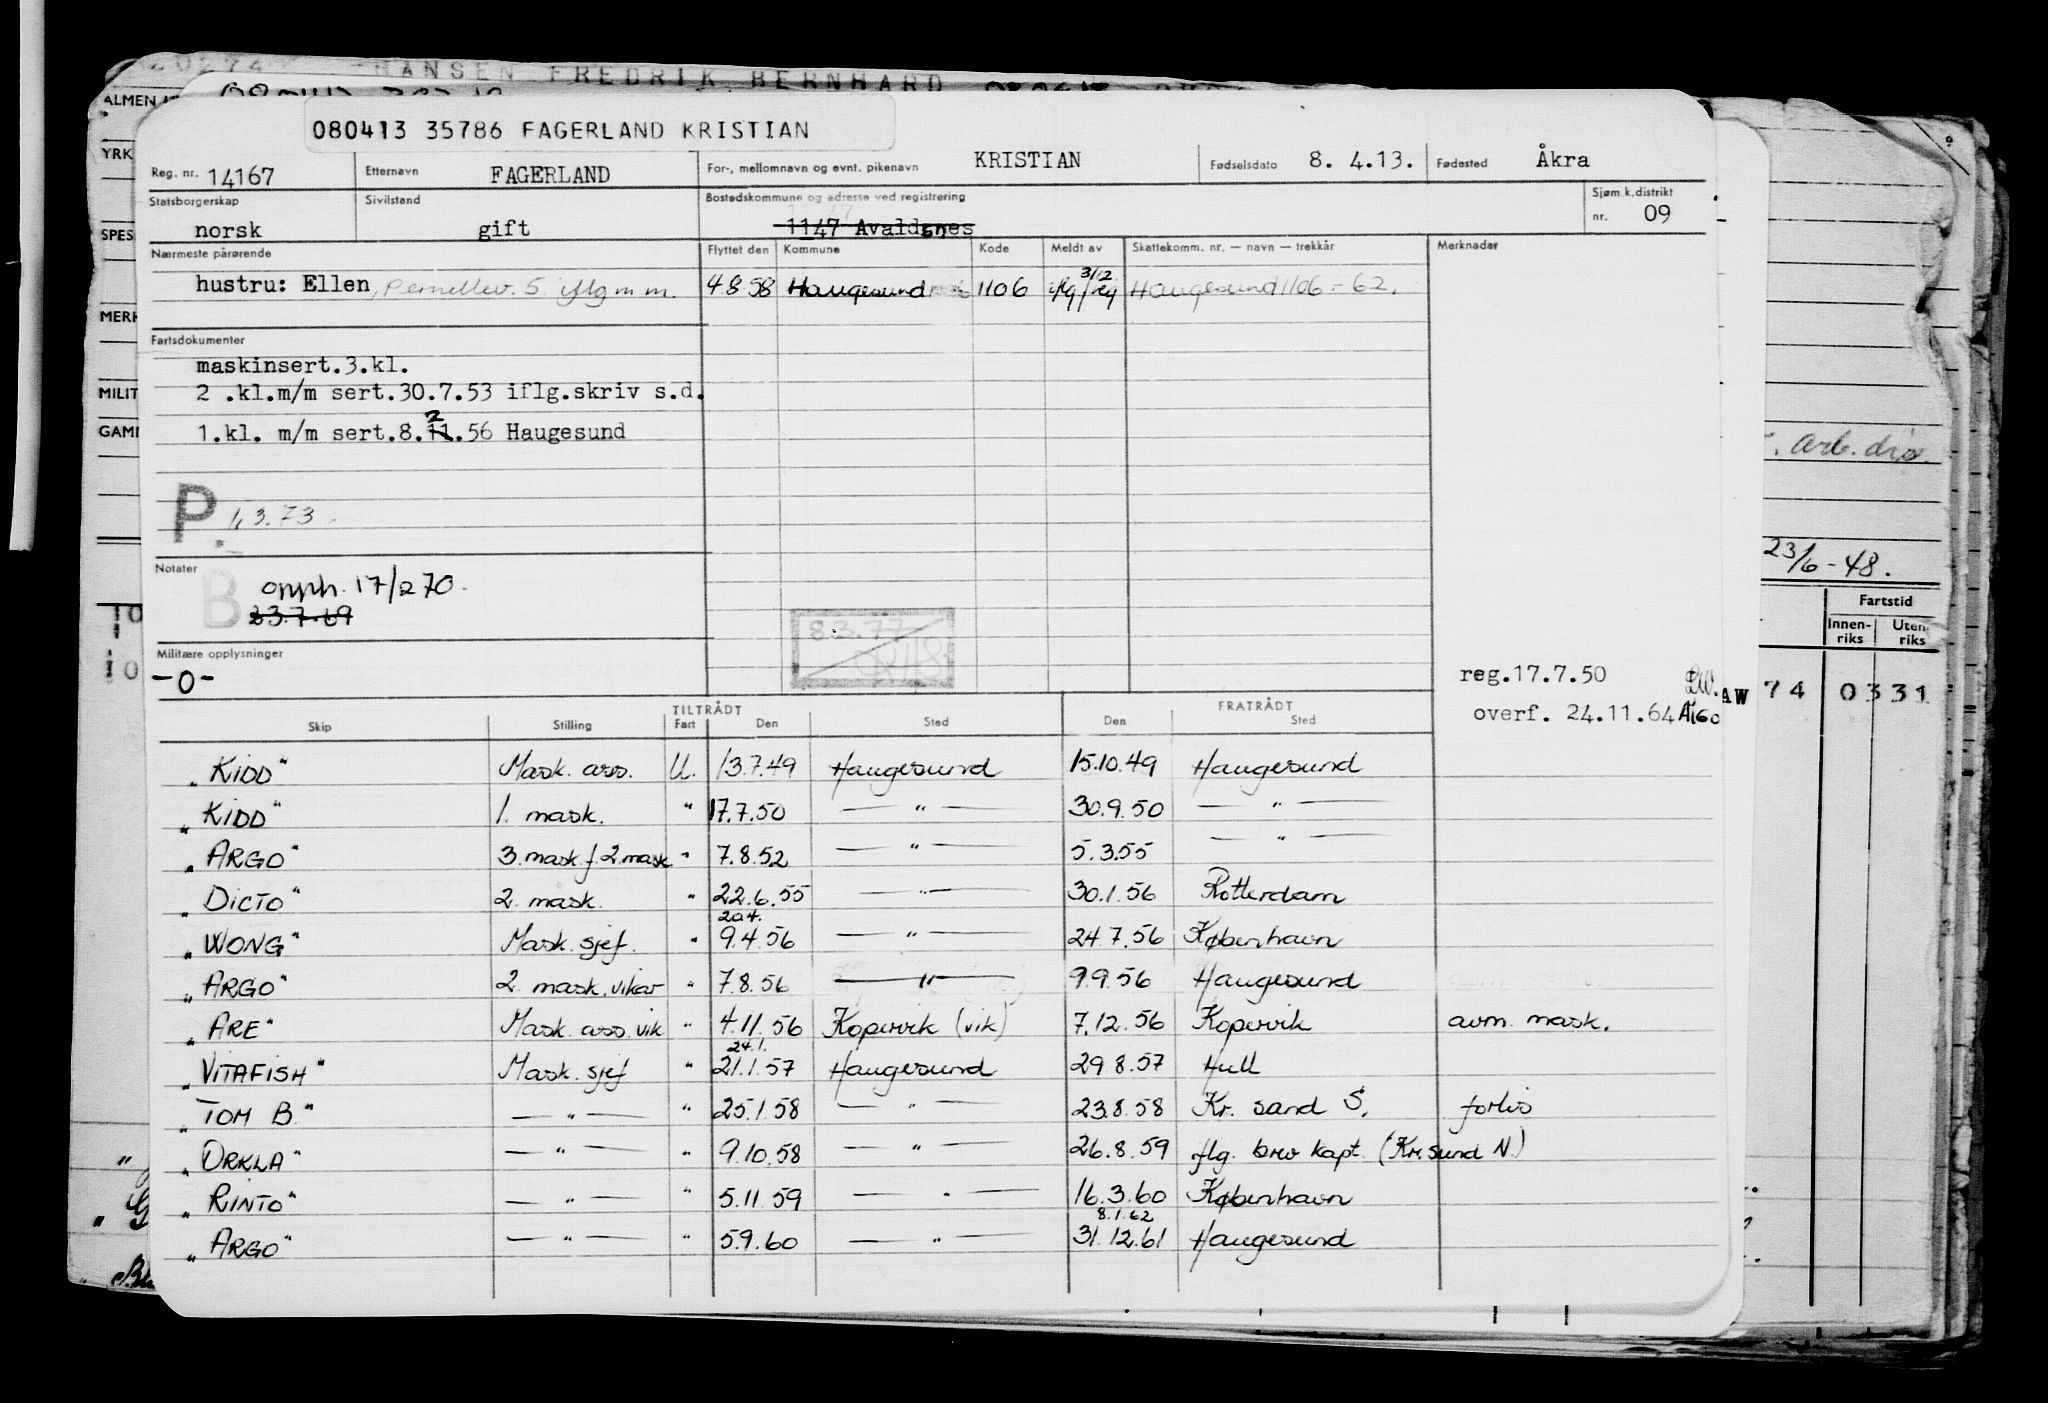 HANSEN FREDRIK BERNHARD
080413 35786 FAGERLAND KRISTIAN
Reg. nr. 14167 Etternavn FAGERLAND For-, mellomnavn og evnt. pikenavn KRISTIAN Fødselsdato 8. 4.13. Fødested Åkra
Statsborgerskap norsk Sivilstand gift Bostedskommune og adresse ved registrering 1147 Avaldsnes Sjøm.k.distrikt nr. 09
Nærmeste pårørende Flyttet den Kommune Kode Meldt av Skattekomm. nr. — navn — trekkår Merknader
hustru: Ellen, Pernillev. 5 iflg m m. 4 8 58 Haugesund 1106 Haugesund 1106 - 62.
Fartsdokumenter
maskinsert.3.kl.
2 .kl.m/m sert.30.7.53 iflg.skriv s.d.
1.kl. m/m sert.8.2.56 Haugesund
P. 1.3.73
Notater
B opph. 17/2 70.
23.7.69
8.3.77
Militære opplysninger
-0-
reg.17.7.50
overf. 24.11.64
TILTRÅDT FRATRÅDT
Skip Stilling Fart Den Sted Den Sted
„KIDD" Mask. ass. U. 13.7.49 Haugesund 15.10.49 Haugesund
„KIDD" 1. mask. " 17.7.50 — " — 30.9.50 — " —
„ARGO" 3. mask f 2 mask " 7.8.52 — " — 5.3.55 — " —
„DICTO" 2. mask. " 22.6.55 — " — 30.1.56 Rotterdam
20.4.
„WONG" Mask. sjef. " 9.4.56 — " — 24.7.56 København
„ARGO" 2. mask. vikar " 7.8.56 — " — 9.9.56 Haugesund
„ARE" Mask. ass. vik " 4.11.56 Kopervik (vik) 7.12.56 Kopervik avm. mask.
24.1.
„VITAFISH" Mask. sjef " 21.1.57 Haugesund 29.8.57 Hull
„TOM B." — " — " 25.1.58 — " — 23.8.58 Kr. sand S. forlis
„ORKLA" — " — " 9.10.58 — " — 26.8.59 flg. brev kapt. (Kr.sund N.)
„RINTO" — " — " 5.11.59 — " — 16.3.60 København
8.1.62
„ARGO" — " — " 5.9.60 — " — 31.12.61 Haugesund
YRK
SPES
MERK
MILIT
GAM
arb. div.
23/6-48.
Fartstid
Innen-riks Uten riks
AW 74 0331